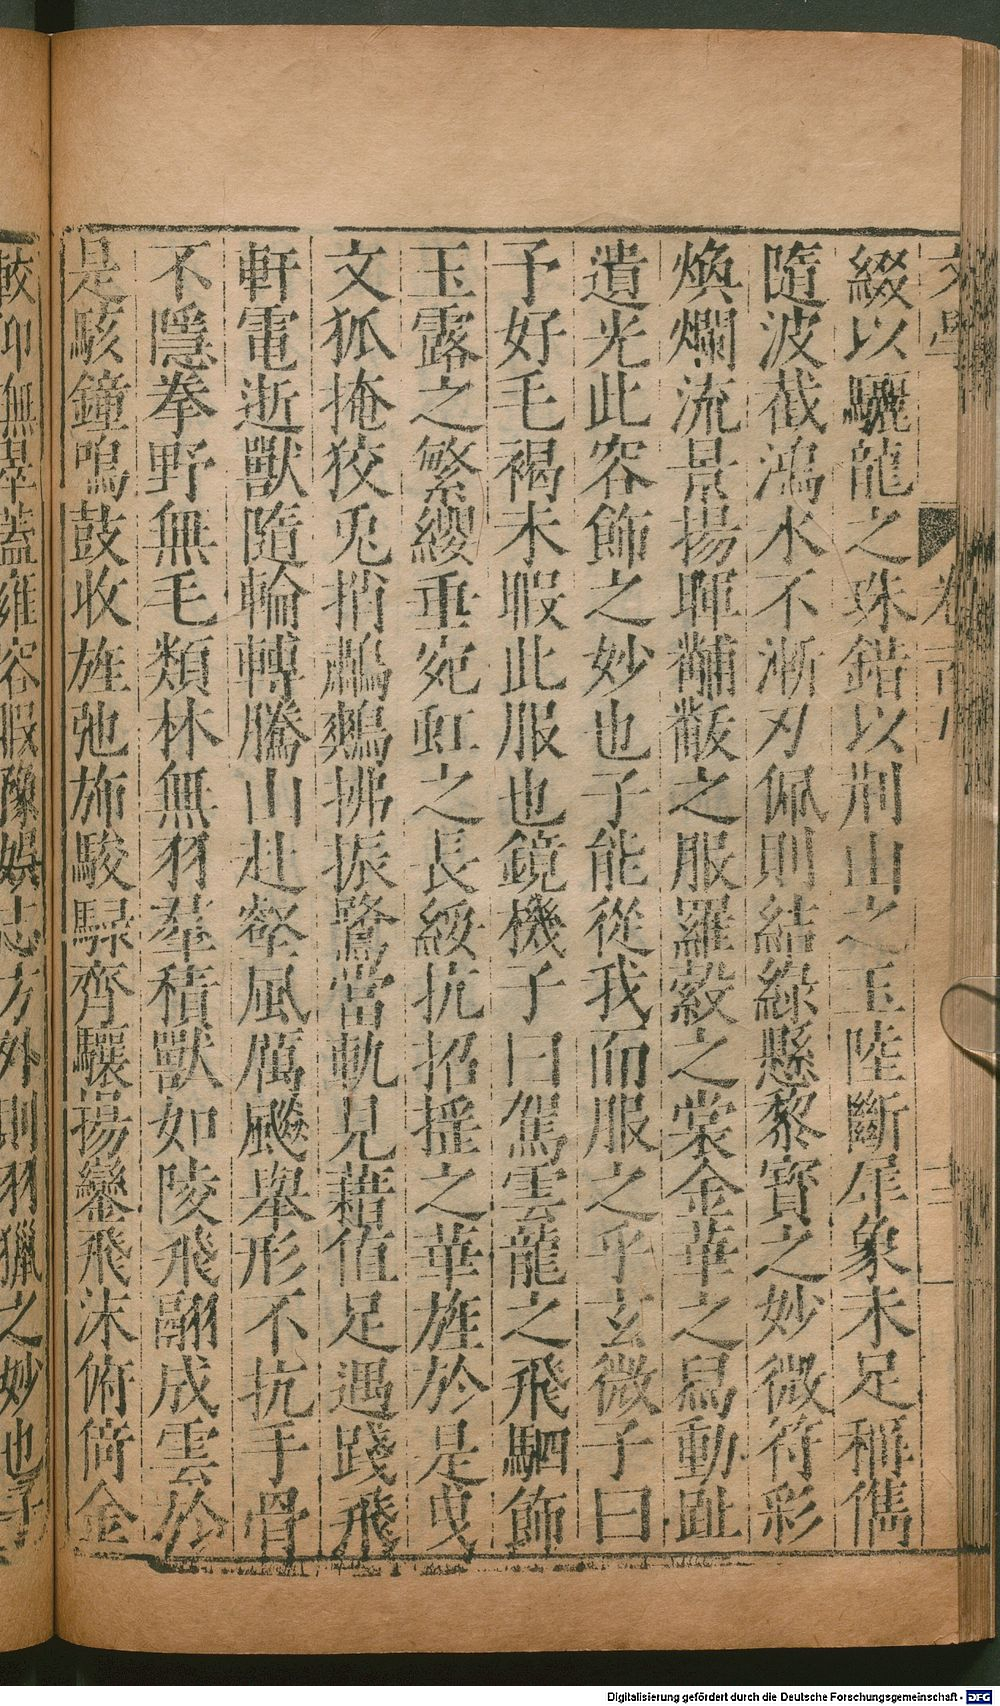 綴以驪龍之珠錯以荆山之玉陸斷犀象未足稱儁
隨波截鴻水不漸刃佩則結綠懸黎寶之妙微符彩
煥爛流景揚暉黼黻之服羅縠之裳金華之舄動趾
遺光此容飾之妙也子能從我而服之乎玄微子曰
予好毛褐未暇此服也鏡機子曰駕雲龍之飛駟飾
玉露之繁纓垂宛虹之長綏抗招搖之華旌於是曳
文狐掩狡兎捎鷫鷞拂振鷺當軌見藉值足遇踐飛
軒電逝獸隨輪轉騰山赴壑風厲飈舉形不抗手骨
不隱拳野無毛類林無羽羣積獸如陵飛翮成雲於
是駭鐘鳴鼓收旌弛斾駿騄齊驤揚鑾飛沫俯倚金
較仰無翠蓋雍容暇豫娛志方外則羽獵之妙也子
Digitalisierung gefördert durch die Deutsche Forschungsgemeinschaft - DFG